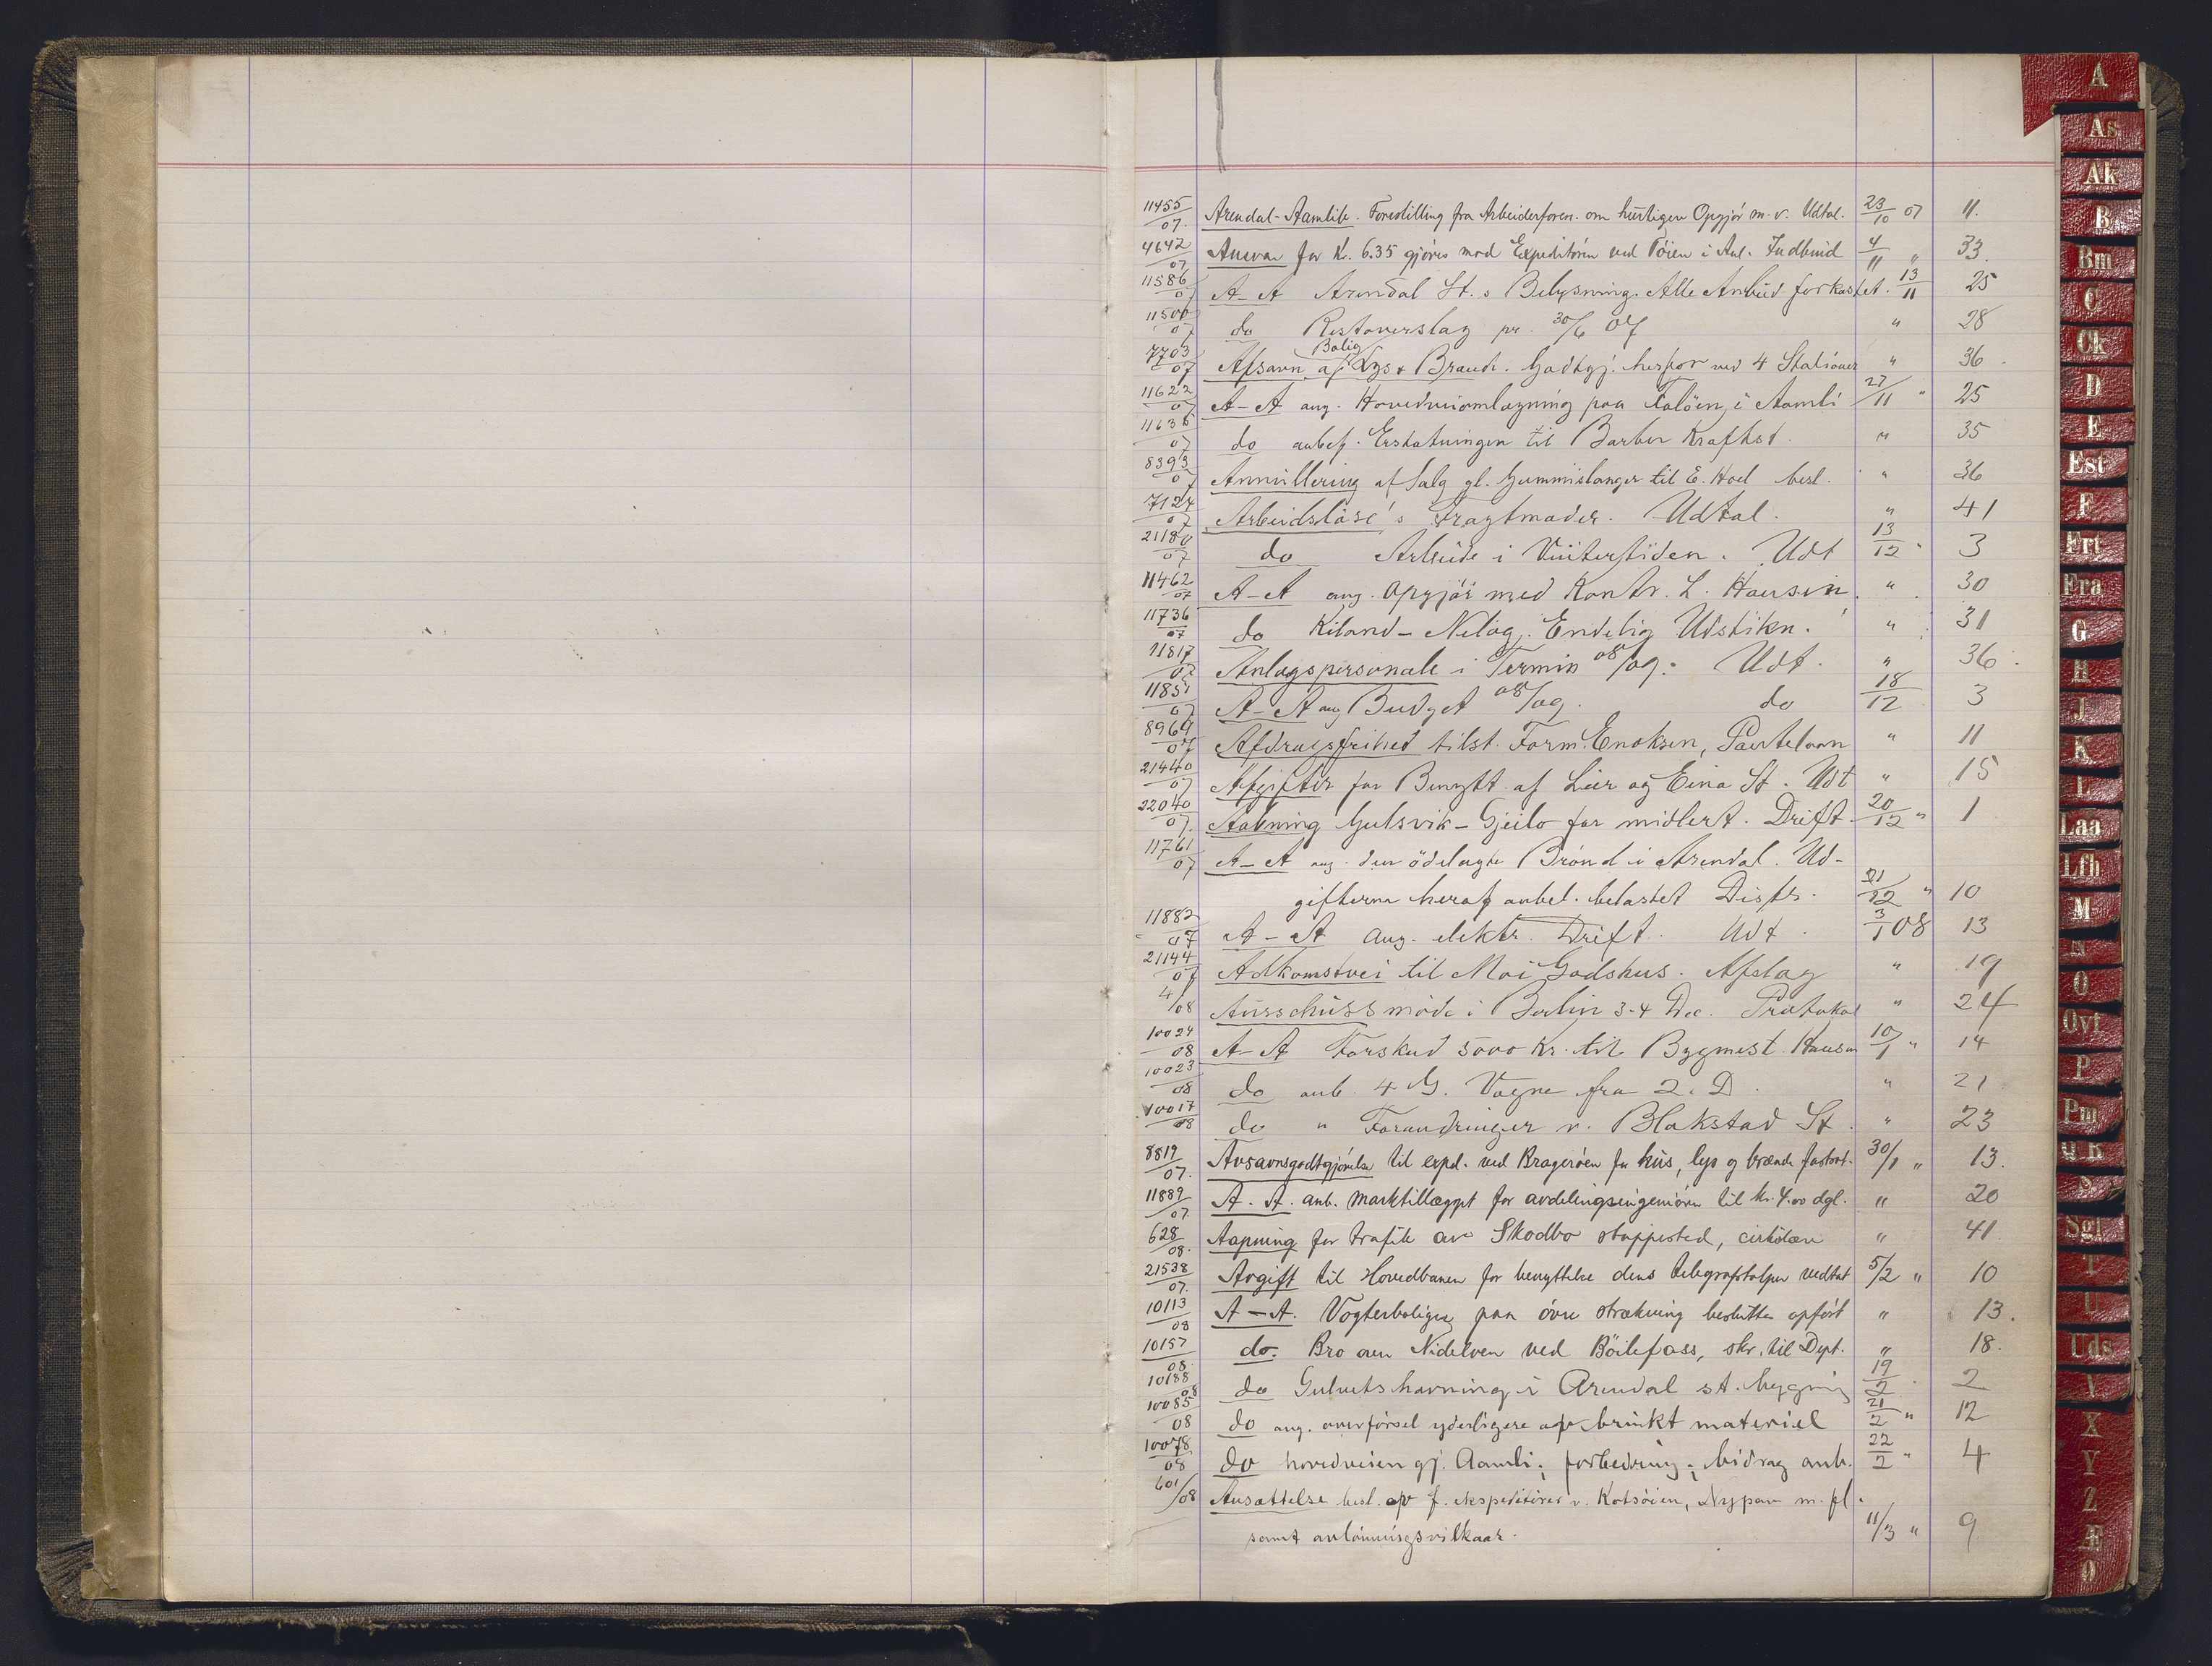 11455/07. Arendal-Aamlib. Forestilling fra Arbeiderforen. om hurtigere Opgjör m.v. Udtal. 23/10 07 11.
4642/07 Ansvar for Kr. 6.35 gjöres mod Expeditören ved Töien i Anl. Indbud 4/11 " 33.
11586/07 A-A Arendal St.s Belysning. Alle Anbud forkastet. 13/11 25
11500/07 do Restoverslag pr. 30/6 07 " 28
7703/07 Afsavn af Bolig Lys & Brænde. Godtgj. herfor ved 4 Stationer " 36.
11622/07 A-A ang. Hovedveiomlægning paa i Aamli 27/11 " 25
11636/07 do anbef. Erstatningen til Barbu Kraftst. " 35
8393/07 Annullering af Salg gl. Gummislanger til E. Hoel besl. " 36
7124/07 Arbeidslöse's Fragtmoder. Udtal. " 41
21180/07 do Arbeide i Vintertiden. Udt 13/12 " 3
11462/07 A-A ang. Opgjör med Kontr. L. Hansen. " 30
11736/07 do Kiland-Nelag. Endelig Udstikn. " 31
11817/07 Anlægspersonale i Termin 08/09. Udt. " 36.
11851/07 A-A ang Budget 08/09. do 18/12 3
8969/07 Afdragsfrihed tilst. Form. Enoksen, Panteloan " 11
21440/07 Afgifter for Benytt. af Lier og Eina St. Udt " 15
22040/07. Aabning Gulsvik-Gjeilo for midlert. Drift. 20/12 " 1
11761/07 A-A ang. den ödelagte Brönd i Arendal. Ud-
gifterne heraf anbef. belastet Distr. 21/12 " 10
11882/07 A-A ang. elektr. Drift. Udt. 3/1 08 13
21144/07 Adkomstvei til Moi Godshus. Afslag " 19
4/08 Ausschussmöde i Berlin 3-4 Dec. Protokol " 24
10024/08 A-A Forskud 5000 Kr. til Bygmest. Hansen 10/1 " 14
10023/08 do anb. 4 G. Vogne fra 2. D. " 21
10017/08 do " Forandringer v. Blakstad St. " 23
8819/07. Avsavnsgodtgjörelse til exped. ved Kragerøen for hus, lys og brænde fastsat. 30/1 " 13.
11889/07 A.A. anb. marktillægget for avdelingsingeniören til kr. 4.00 dgl. " 20
628/08. Aapning for trafik av Skodbo stoppested, cirkulære " 41
21538/07. Avgift til Hovedbanen for benyttelse dens telegrafstolper vedtat 5/2 " 10
10113/08 A-A. Vogterboliger paa övre strækning besluttes opfört " 13.
10157/08. do. Bro over Nidelven ved Böilefoss, skr. til Dept. " 18.
10188/08 do Gulvets havning i Arendal st. bygning 19/2 2
10085/08 do ang. overförsel yderligere av brukt materiel 21/2 " 12
10078/08 do hovedveien gj. Aamli; forbedring; bidrag anb. 22/2 " 4
601/08 Ansættelse besl. av f. ekspeditörer v. Kotsöien, Nypan m. fl.
samt avlönningsvilkaar. 11/3 " 9
A
As
Ak
B
Bm
C
Ck
D
E
Est
F
Frt
Fra
G
H
J
K
L
Laa
Lfh
M
N
O
Ovf
P
Pm
Q R
S
Sgl
T
U
Uds
V
X
Y
Z
Æ
Ø